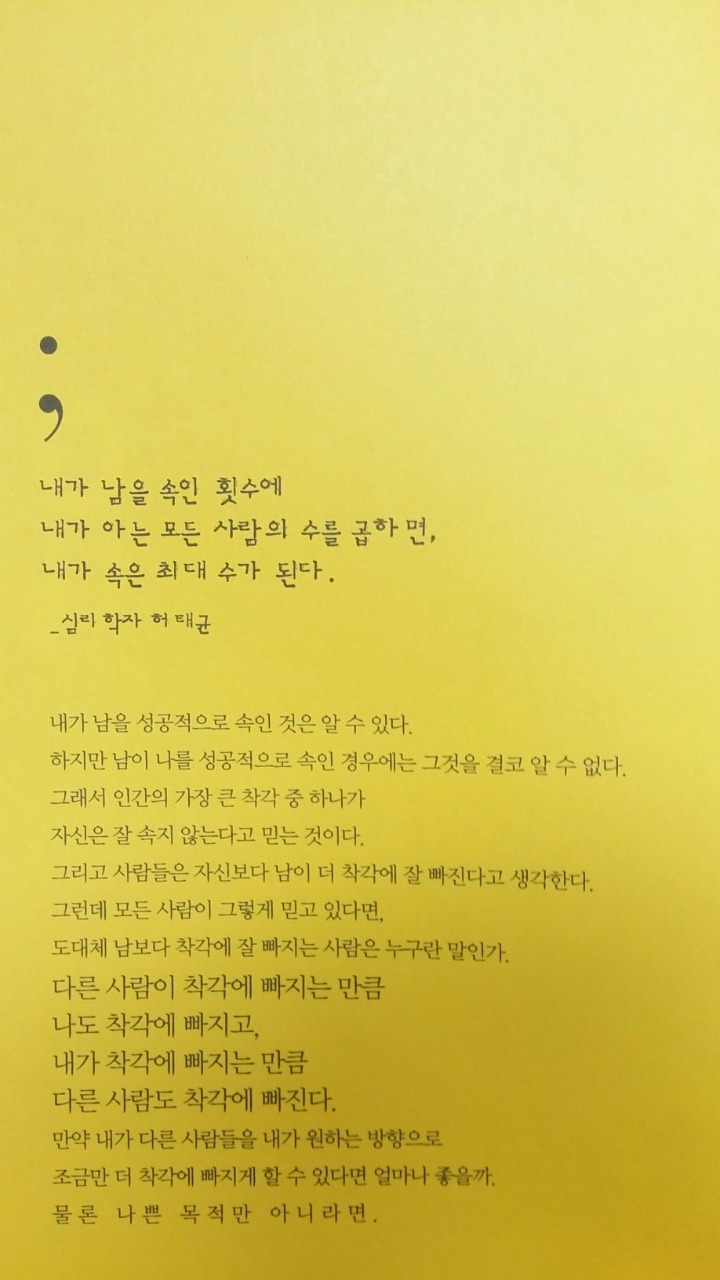 ;
내가 남을 속인 횟수에
내가 아는 모든 사람의 수를 곱하면,
내가 속은 최대 수가 된다.
_심리학자 허태균
내가 남을 성공적으로 속인 것은 알 수 있다.
하지만 남이 나를 성공적으로 속인 경우에는 그것을 결코 알 수 없다.
그래서 인간의 가장 큰 착각 중 하나가
자신은 잘 속지 않는다고 믿는 것이다.
그리고 사람들은 자신보다 남이 더 착각에 잘 빠진다고 생각한다.
그런데 모든 사람이 그렇게 믿고 있다면,
도대체 남보다 착각에 잘 빠지는 사람은 누구란 말인가.
다른 사람이 착각에 빠지는 만큼
나도 착각에 빠지고,
내가 착각에 빠지는 만큼
다른 사람도 착각에 빠진다.
만약 내가 다른 사람들을 내가 원하는 방향으로
조금만 더 착각에 빠지게 할 수 있다면 얼마나 좋을까.
물론 나쁜 목적만 아니라면.